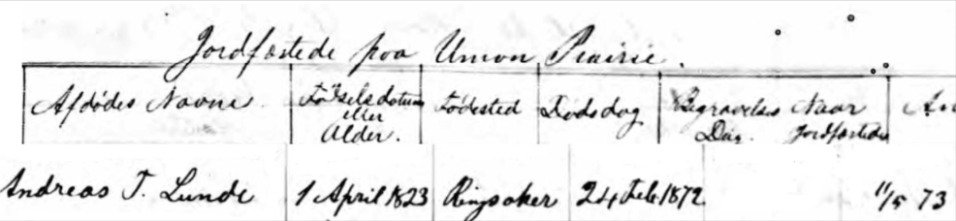 Jordfæstede paa Union Prairie.
Afdødes Navne. Fødselsdatum eller Alder. Fødested Dødsdag Begravelses Dag. Naar Jordfæstede An
Andreas T. Lunde 1 April 1823 Ringsaker 24 Feb 1872 11/5 73